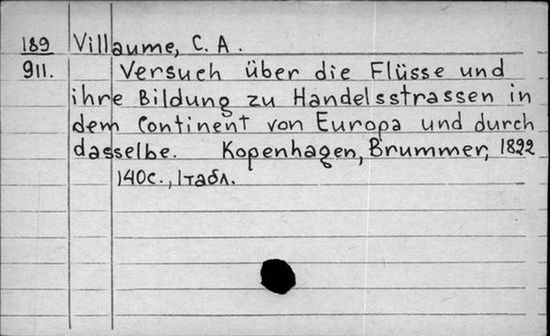 189 Villaume, C. A.
911. Versuch über die Flüsse und
ihre Bildung zu Handelsstrassen in
dem Continent von Europa und durch
dasselbe. Kopenhagen, Brummer, 1822
140с., 1табл.